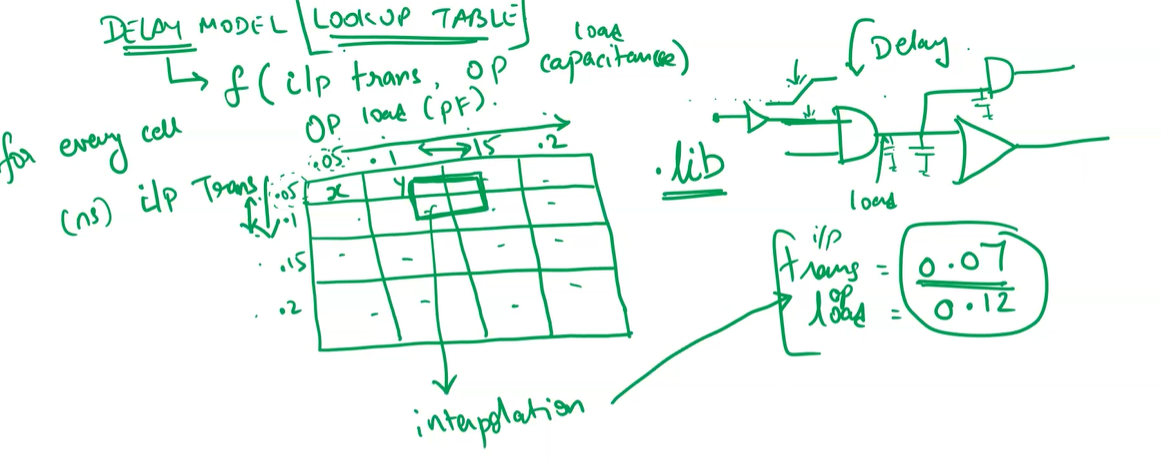 DELAY MODEL [LOOKUP TABLE]
f(i/p trans, OP load capacitance)
for every cell
OP load (pF).
.05 .1 15 .2
(ns) i/p Trans
.05 x y
.1
.15
.2
interpolation
.lib
Delay.
load
i/p
trans = 0.07
op
load = 0.12